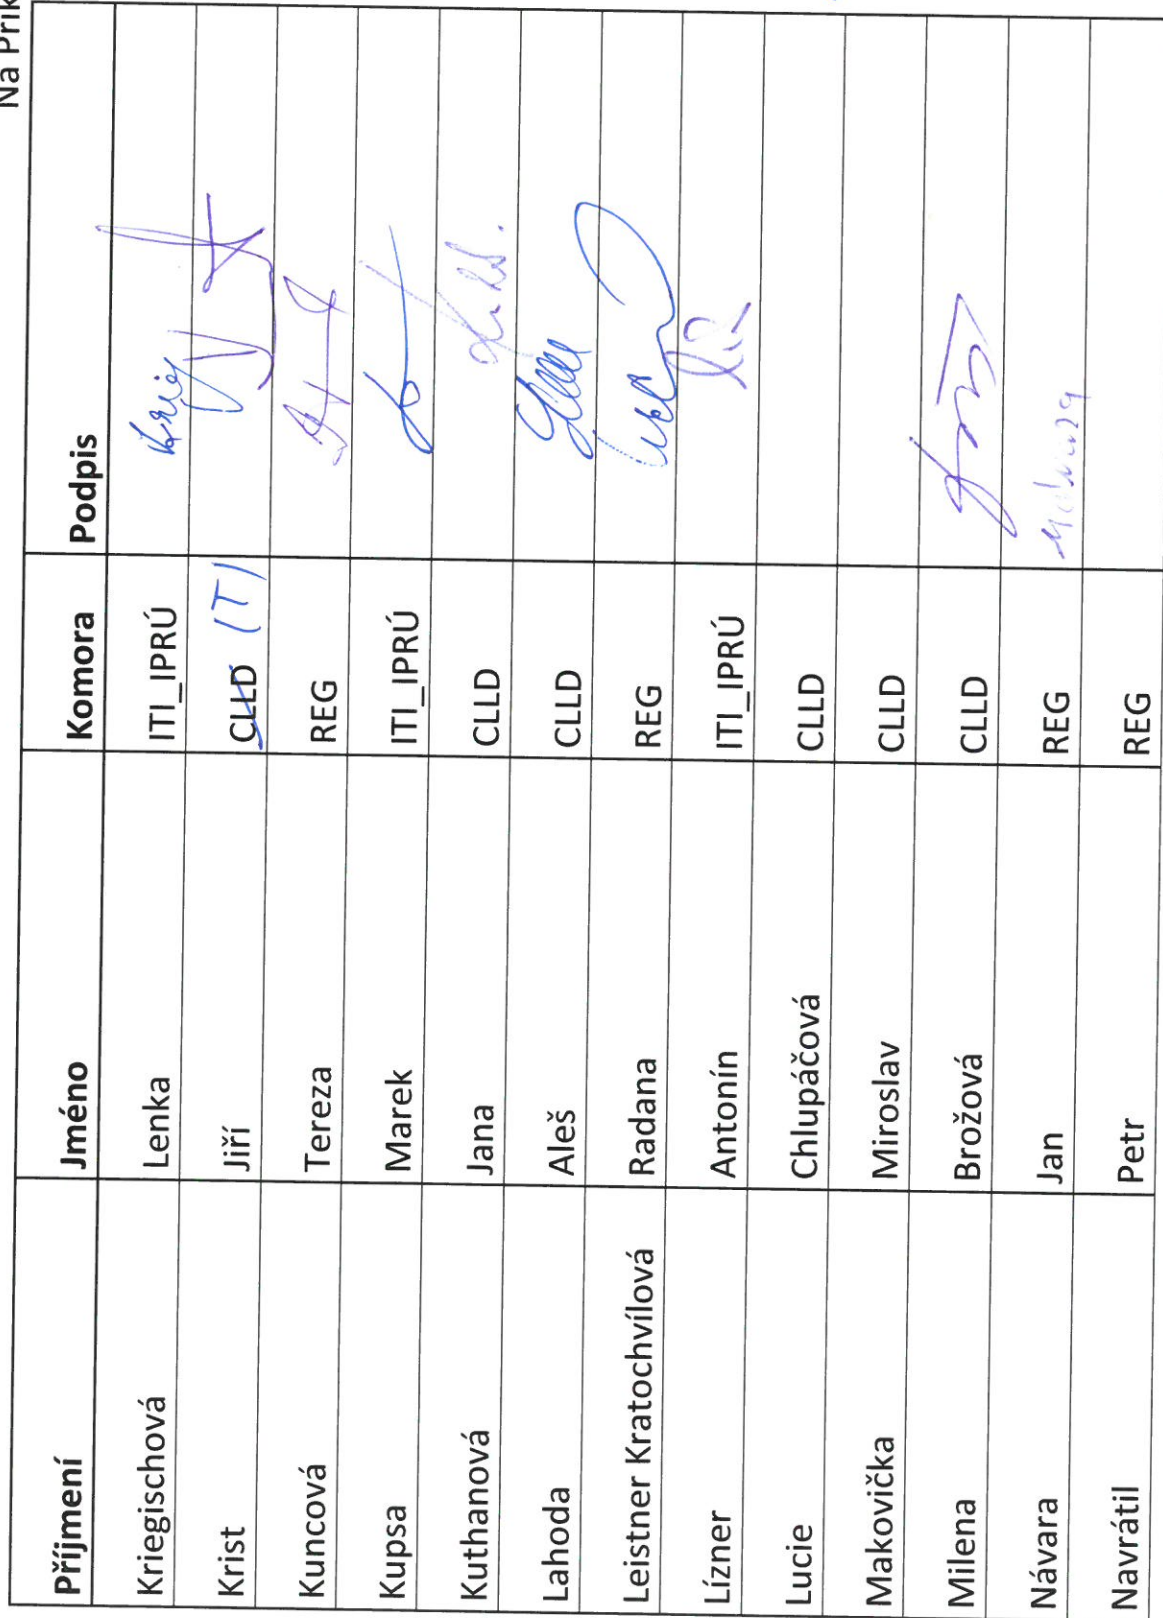 Na Prik
Příjmení Jméno Komora Podpis
Kriegischová Lenka ITI_IPRÚ
Krist Jiří CLLD ITI
Kuncová Tereza REG
Kupsa Marek ITI_IPRÚ
Kuthanová Jana CLLD
Lahoda Aleš CLLD
Leistner Kratochvílová Radana REG
Lízner Antonín ITI_IPRÚ
Lucie Chlupáčová CLLD
Makovička Miroslav CLLD
Milena Brožová CLLD
Návara Jan REG
Navrátil Petr REG